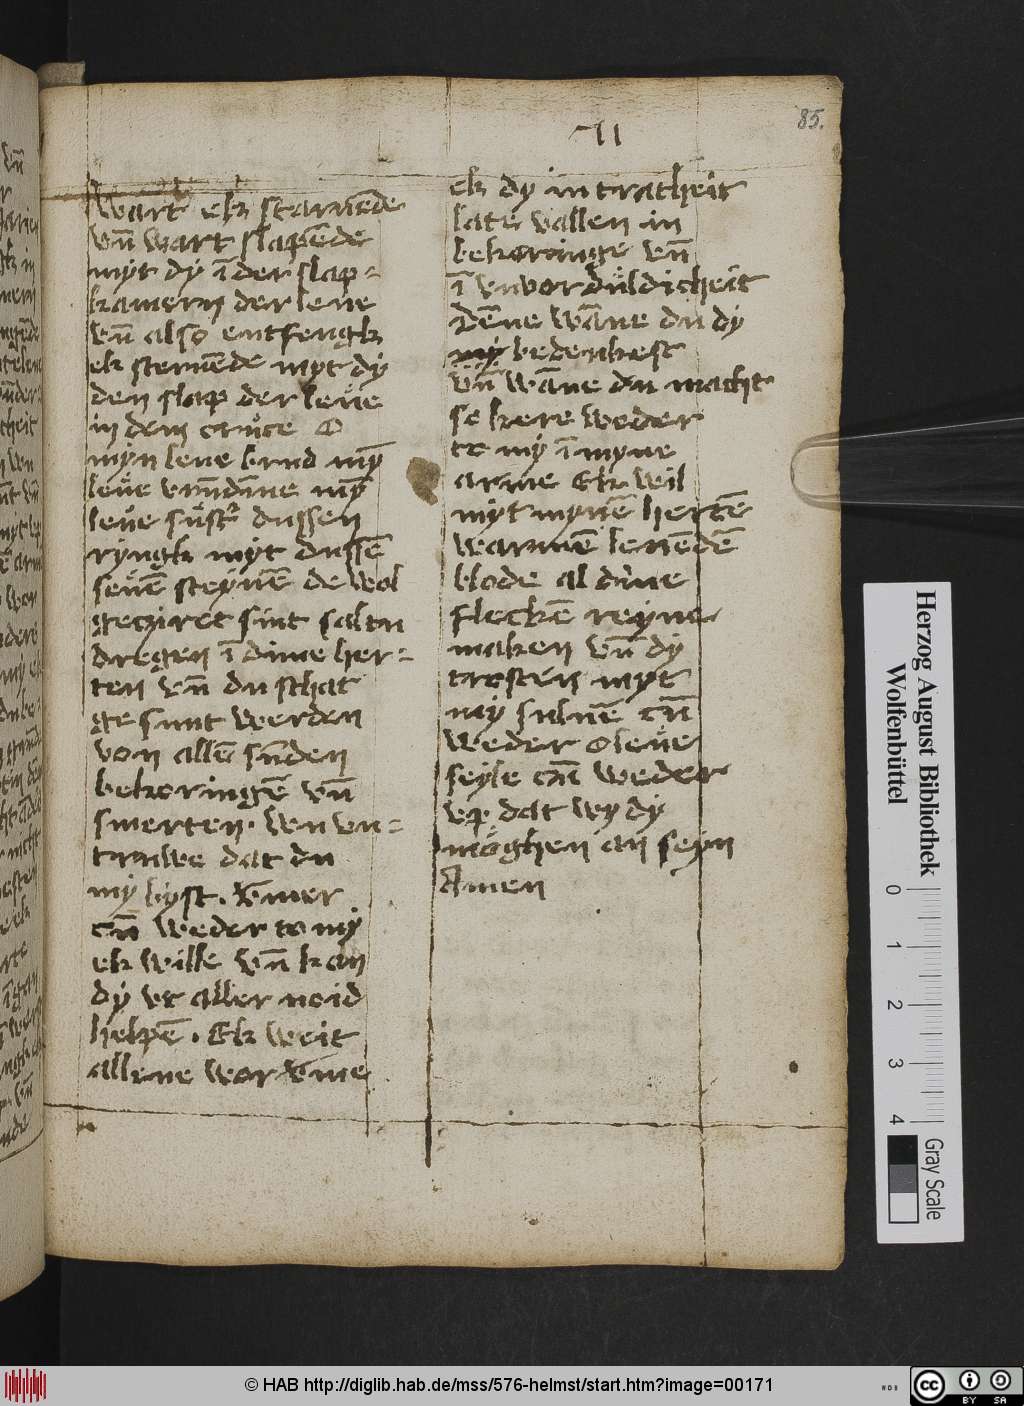 85.
wart ek starūēde
vn̄ wart slapēde
myt dy ī der slap=
kamern der leue
vn̄ also entfengk
ek steruēde myt dy
den slap der leue
in dem cruce O
myn leue brud my̅
leue vrūdīne my̅
leue sust' dussen
ryngk myt dussē
seuē steynē de wol
geziret sint saltu
dregen ī dine her=
ten vn̄ du schat
ge sunt werden
von allē sūden
bekoringē vn̄
smerten. wu vn=
truwe dat du
my byst. ȳmer
cū weder to my
ek wille vn̄ kan
dy vt aller noid
helpē. Ek weit
allene wor v̄me
ek dy in tratheit
late vallen in
bekoringe vn̄
ī vnvorduldicheit
Dēne wāne du dy
my bedenkest
vn̄ wāne du macht
so kere weder
to my ī myne
arme Ek wil
myt mynē hertē
warmē leuēdē
blode al dine
fleckē reyne
maken vn̄ dy
trosten myt
my suluē cū
weder o leue
seyle cū weder
vp dat wy dy
moghen an seyn
Amen
Herzog August Bibliothek
Wolfenbüttel
0 1 2 3 4
Gray Scale
© HAB http://diglib.hab.de/mss/576-helmst/start.htm?image=00171
WDB
cc BY SA